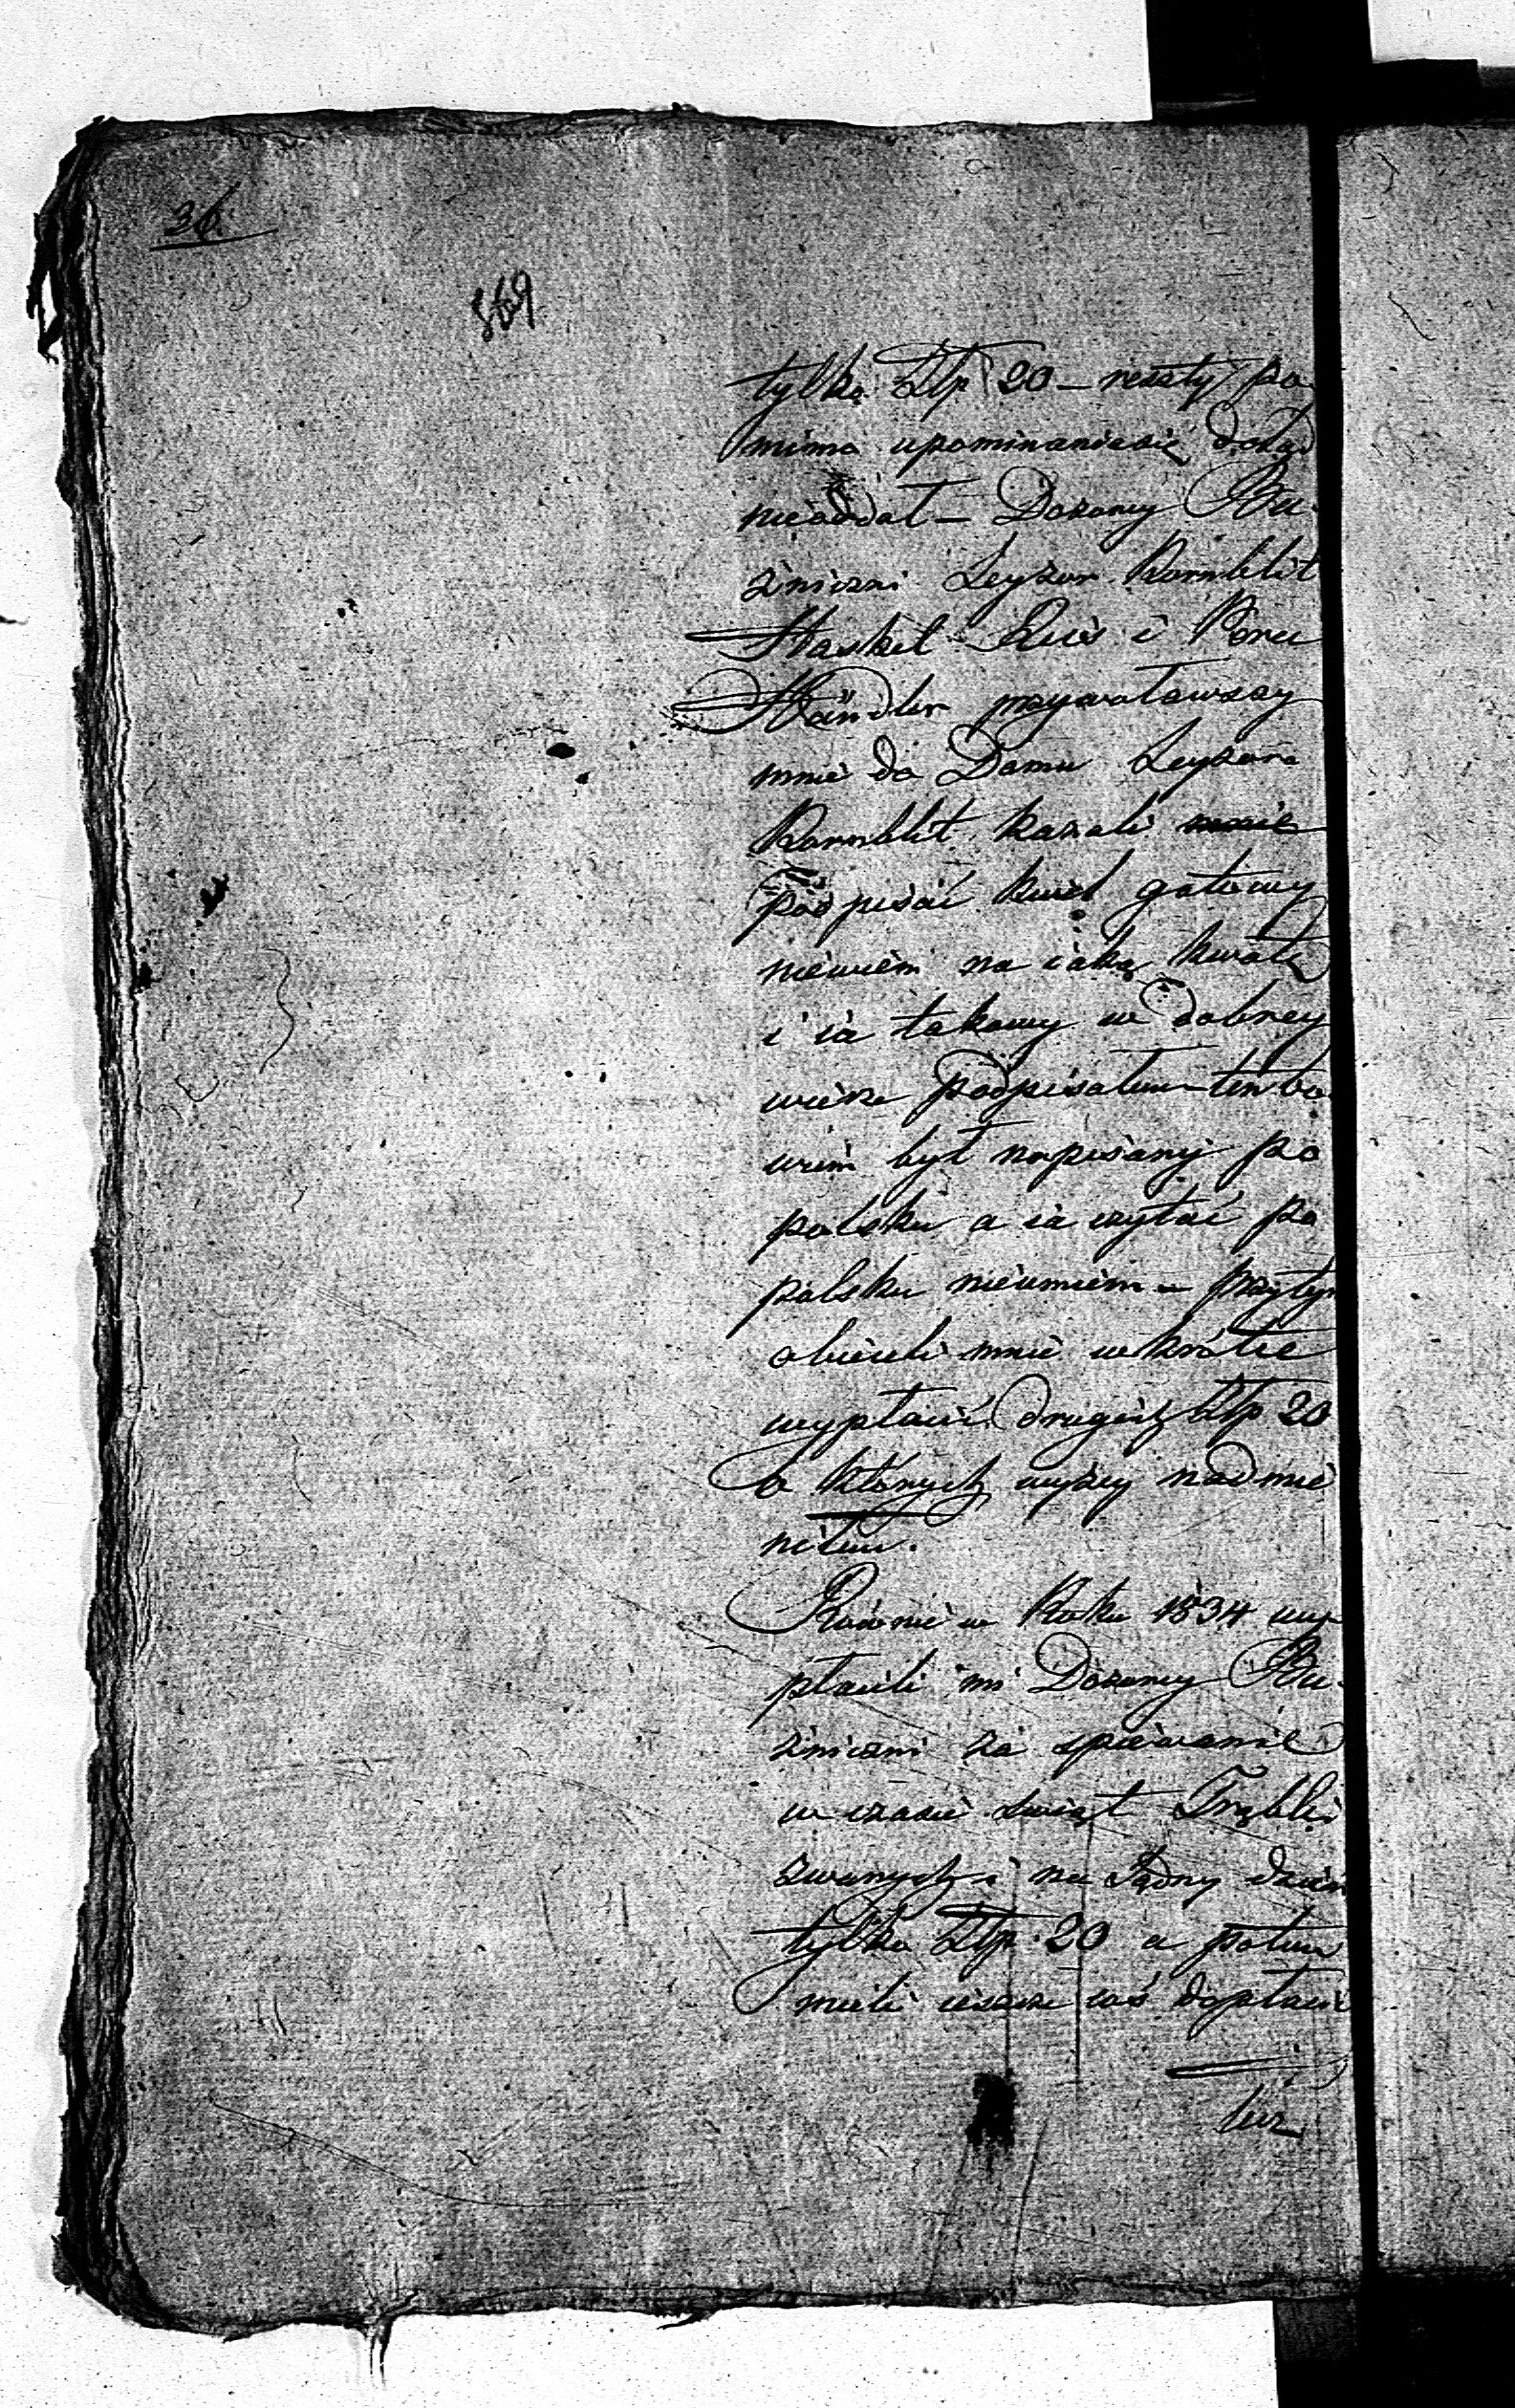 36.
tylko Złp 20 – reszty po
mimo upominania się dotąd
nieoddał – Dozorcy Bu-
żniczni Leyzor Kornblit
Haskel Ruis i Beru
Händler przywoławszy
mnie do Domu Leyzora
Kornblit kazali mnie
podpisać kwit gotowy
niewiem na iaką kwotę
i ia takowy w dobrey
wierze podpisałem – ten bo
wiem był napisany po
polsku a ia czytać po
polsku nieumiem – przytym
obiecali mnie wkrótce
wypłacić drugich Złp 20
o których wyżey nadmie
niłem.
Równie w Roku 1834 wy
płacili mi Dozorcy Bu-
żniczni za spiewanie
w czasie swiąt Trąbki
zwanych i na Sądny dzień
tylko Złp. 20 a potem
mieli ieszcze coś dopłacić
lecz